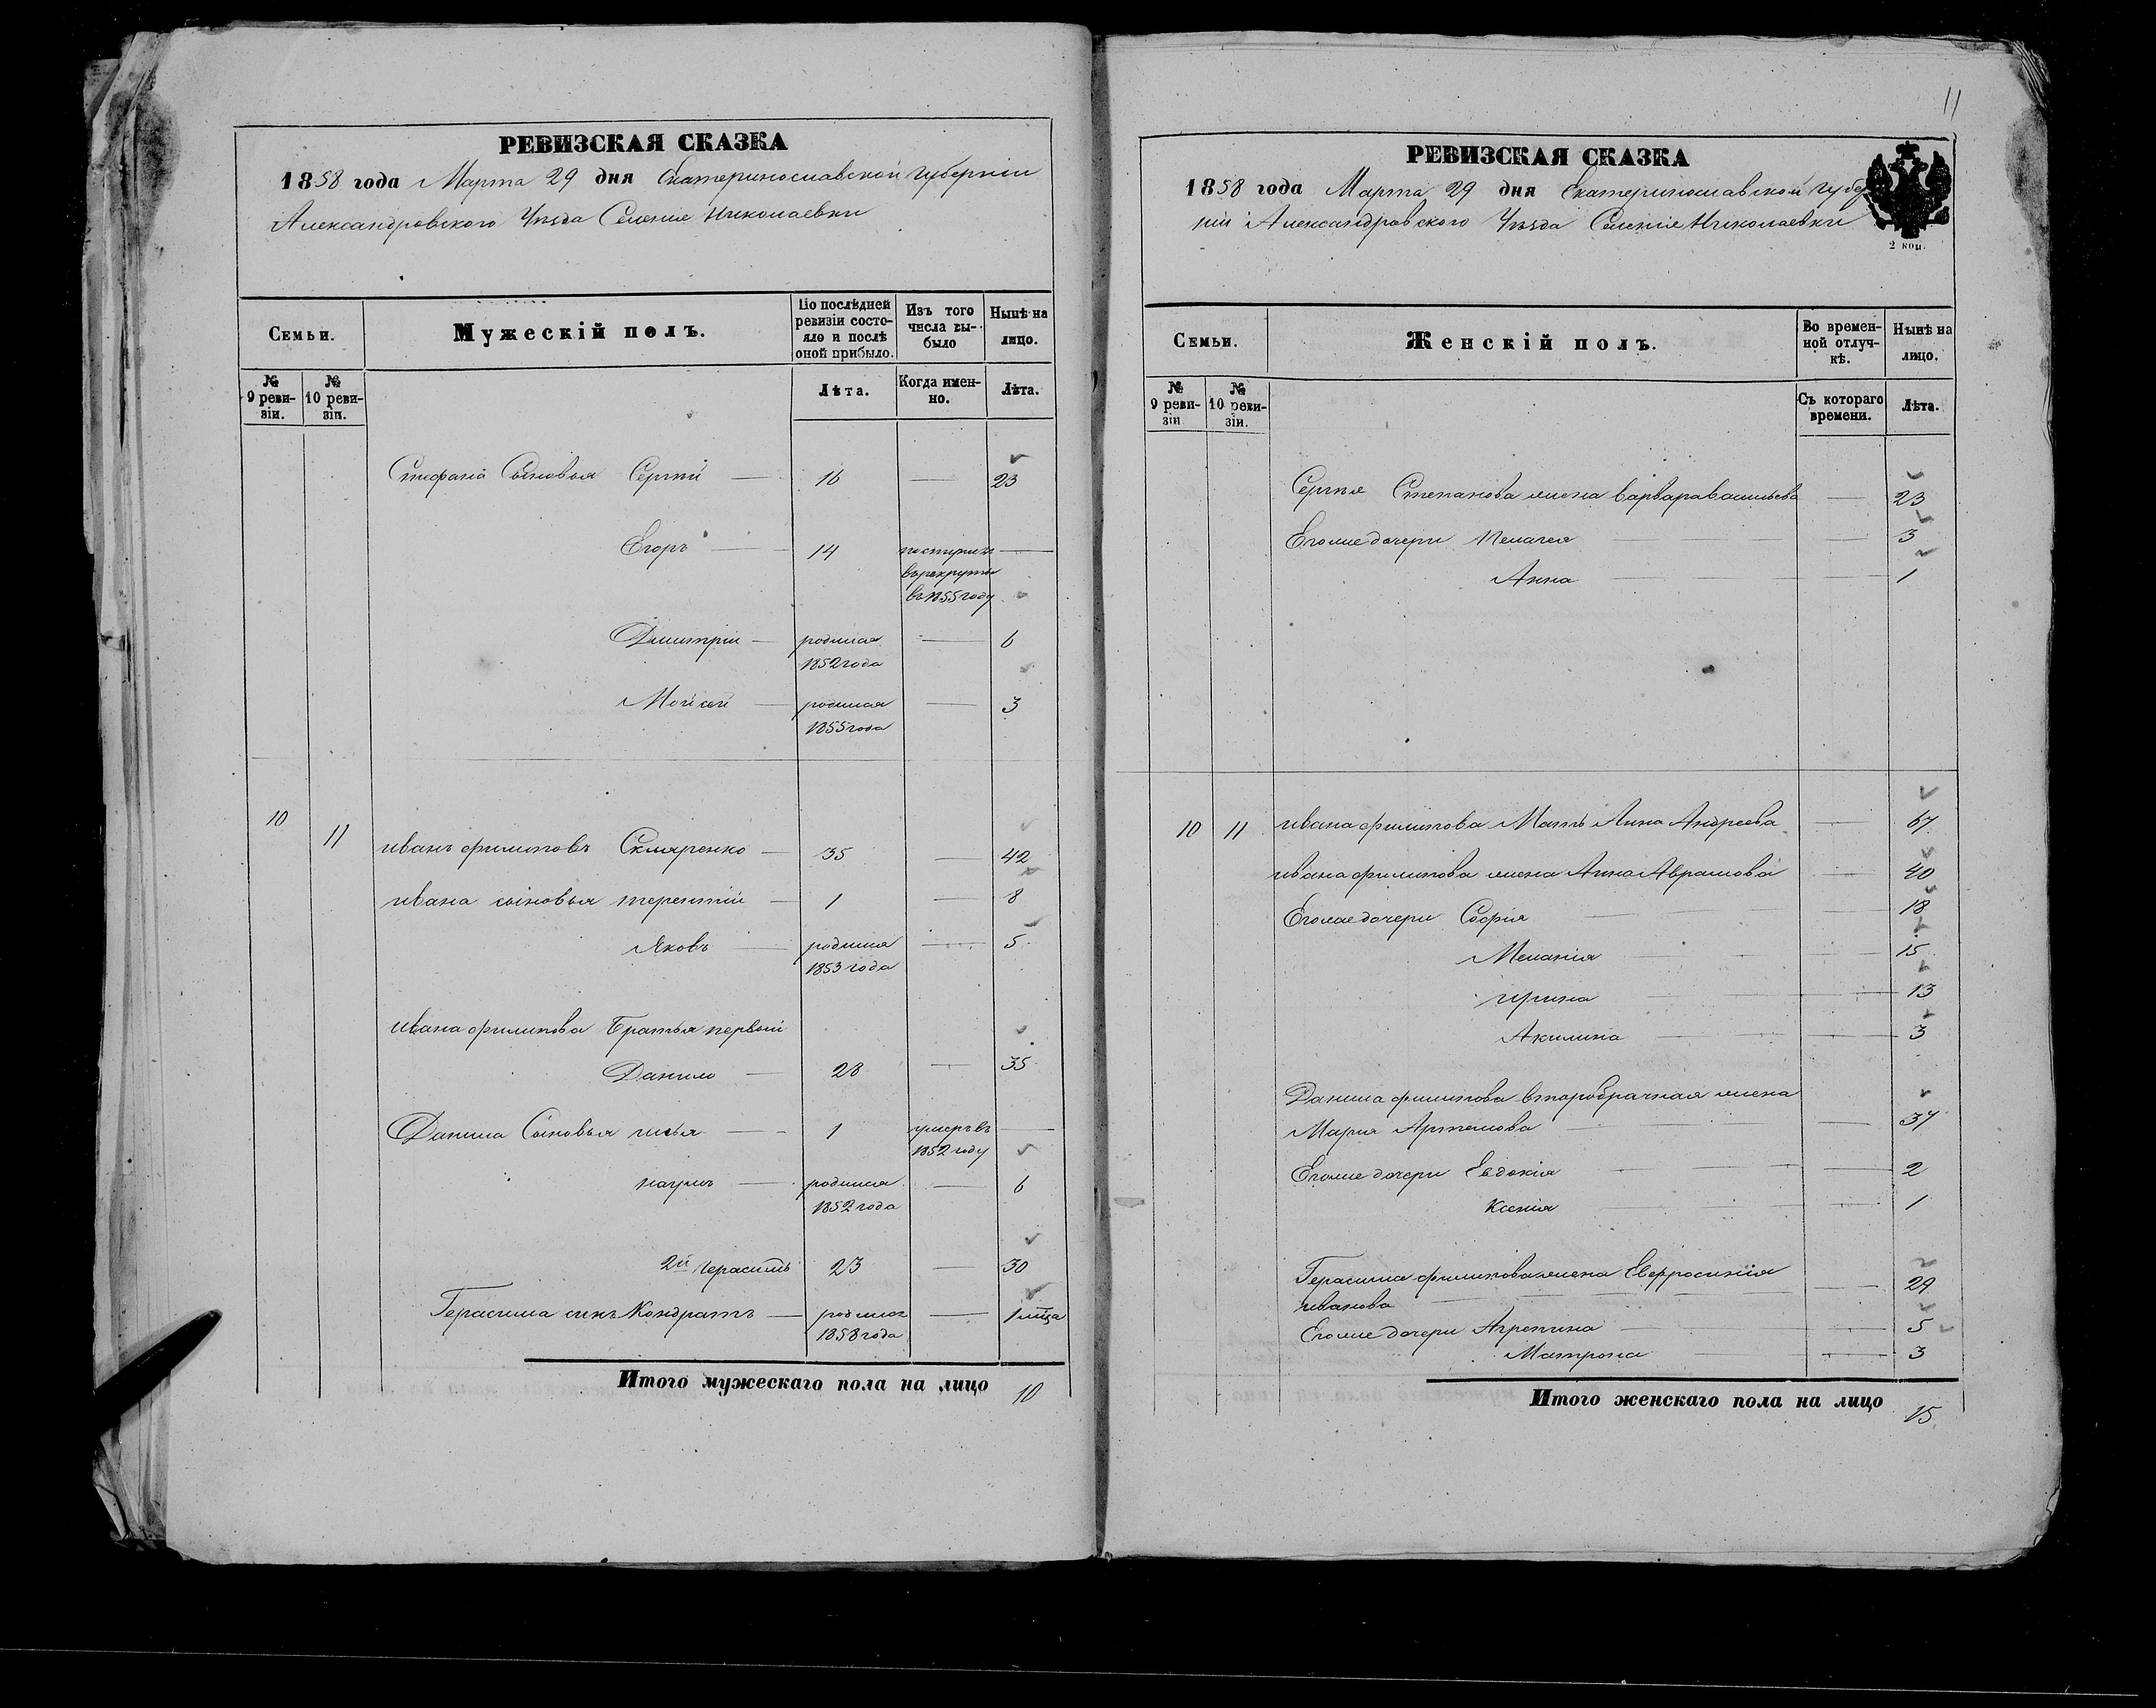 РЕВИЗСКАЯ СКАЗКА
1858 года Марта 29 дня Екатеринославской губерніи
Александровского Уезда Селеніе Николаевки
Семьи.
Мужескій полъ.
По послѣдней ревизіи состояло и послѣ оной прибыло.
Изъ того числа выбыло
Нынѣ на лицо.
№ 9 ревизіи.
№ 10 ревизіи.
Лѣта.
Когда именно.
Лѣта.
Стефана Сыновья Сергей 16 23
Егоръ 14 поступилъ
въ рекруты
въ 1855 году
Дмитрій родился 6
1852 года
Мойсей родился 3
1855 года
10 11 иванъ филиповъ Скляренко 35 42
ивана сыновья терентій 1 8
Яковъ родился 5
1853 года
ивана филипова Братья первый
Данило 28 35
Данила Сыновья илья 1 умеръ въ
1852 году
наумъ родился 6
1852 года
2й Герасимъ 23 30
Герасима сынъ Кондратъ родился 1 мца
1858 года
Итого мужескаго пола на лицо 10
11
РЕВИЗСКАЯ СКАЗКА
1858 года Марта 29 дня Екатеринославской губер
ніи Александровского Уезда Селеніе Николаевки
2 коп.
Семьи.
Женскій полъ.
Во временной отлучкѣ.
Нынѣ на лицо.
№ 9 ревизіи
№ 10 ревизіи.
Съ котораго времени.
Лѣта.
Сергея Степанова жена варвара васильева 23
Его же дочери Пелагея 3
Анна 1
10 11 ивана филипова Мать Анна Андреева 67
ивана филипова жена Анна Аврамова 40
Его же дочери Софія 18
Меланія 15
ирина 13
Акилина 3
Данила филипова второбрачная жена
Мария Артемова 37
Его же дочери Евдокія 2
Ксенія 1
Герасима филипова жена Евфросинія 29
иванова
Его же дочери Агрепина 5
Матрона 3
Итого женскаго пола на лицо 15